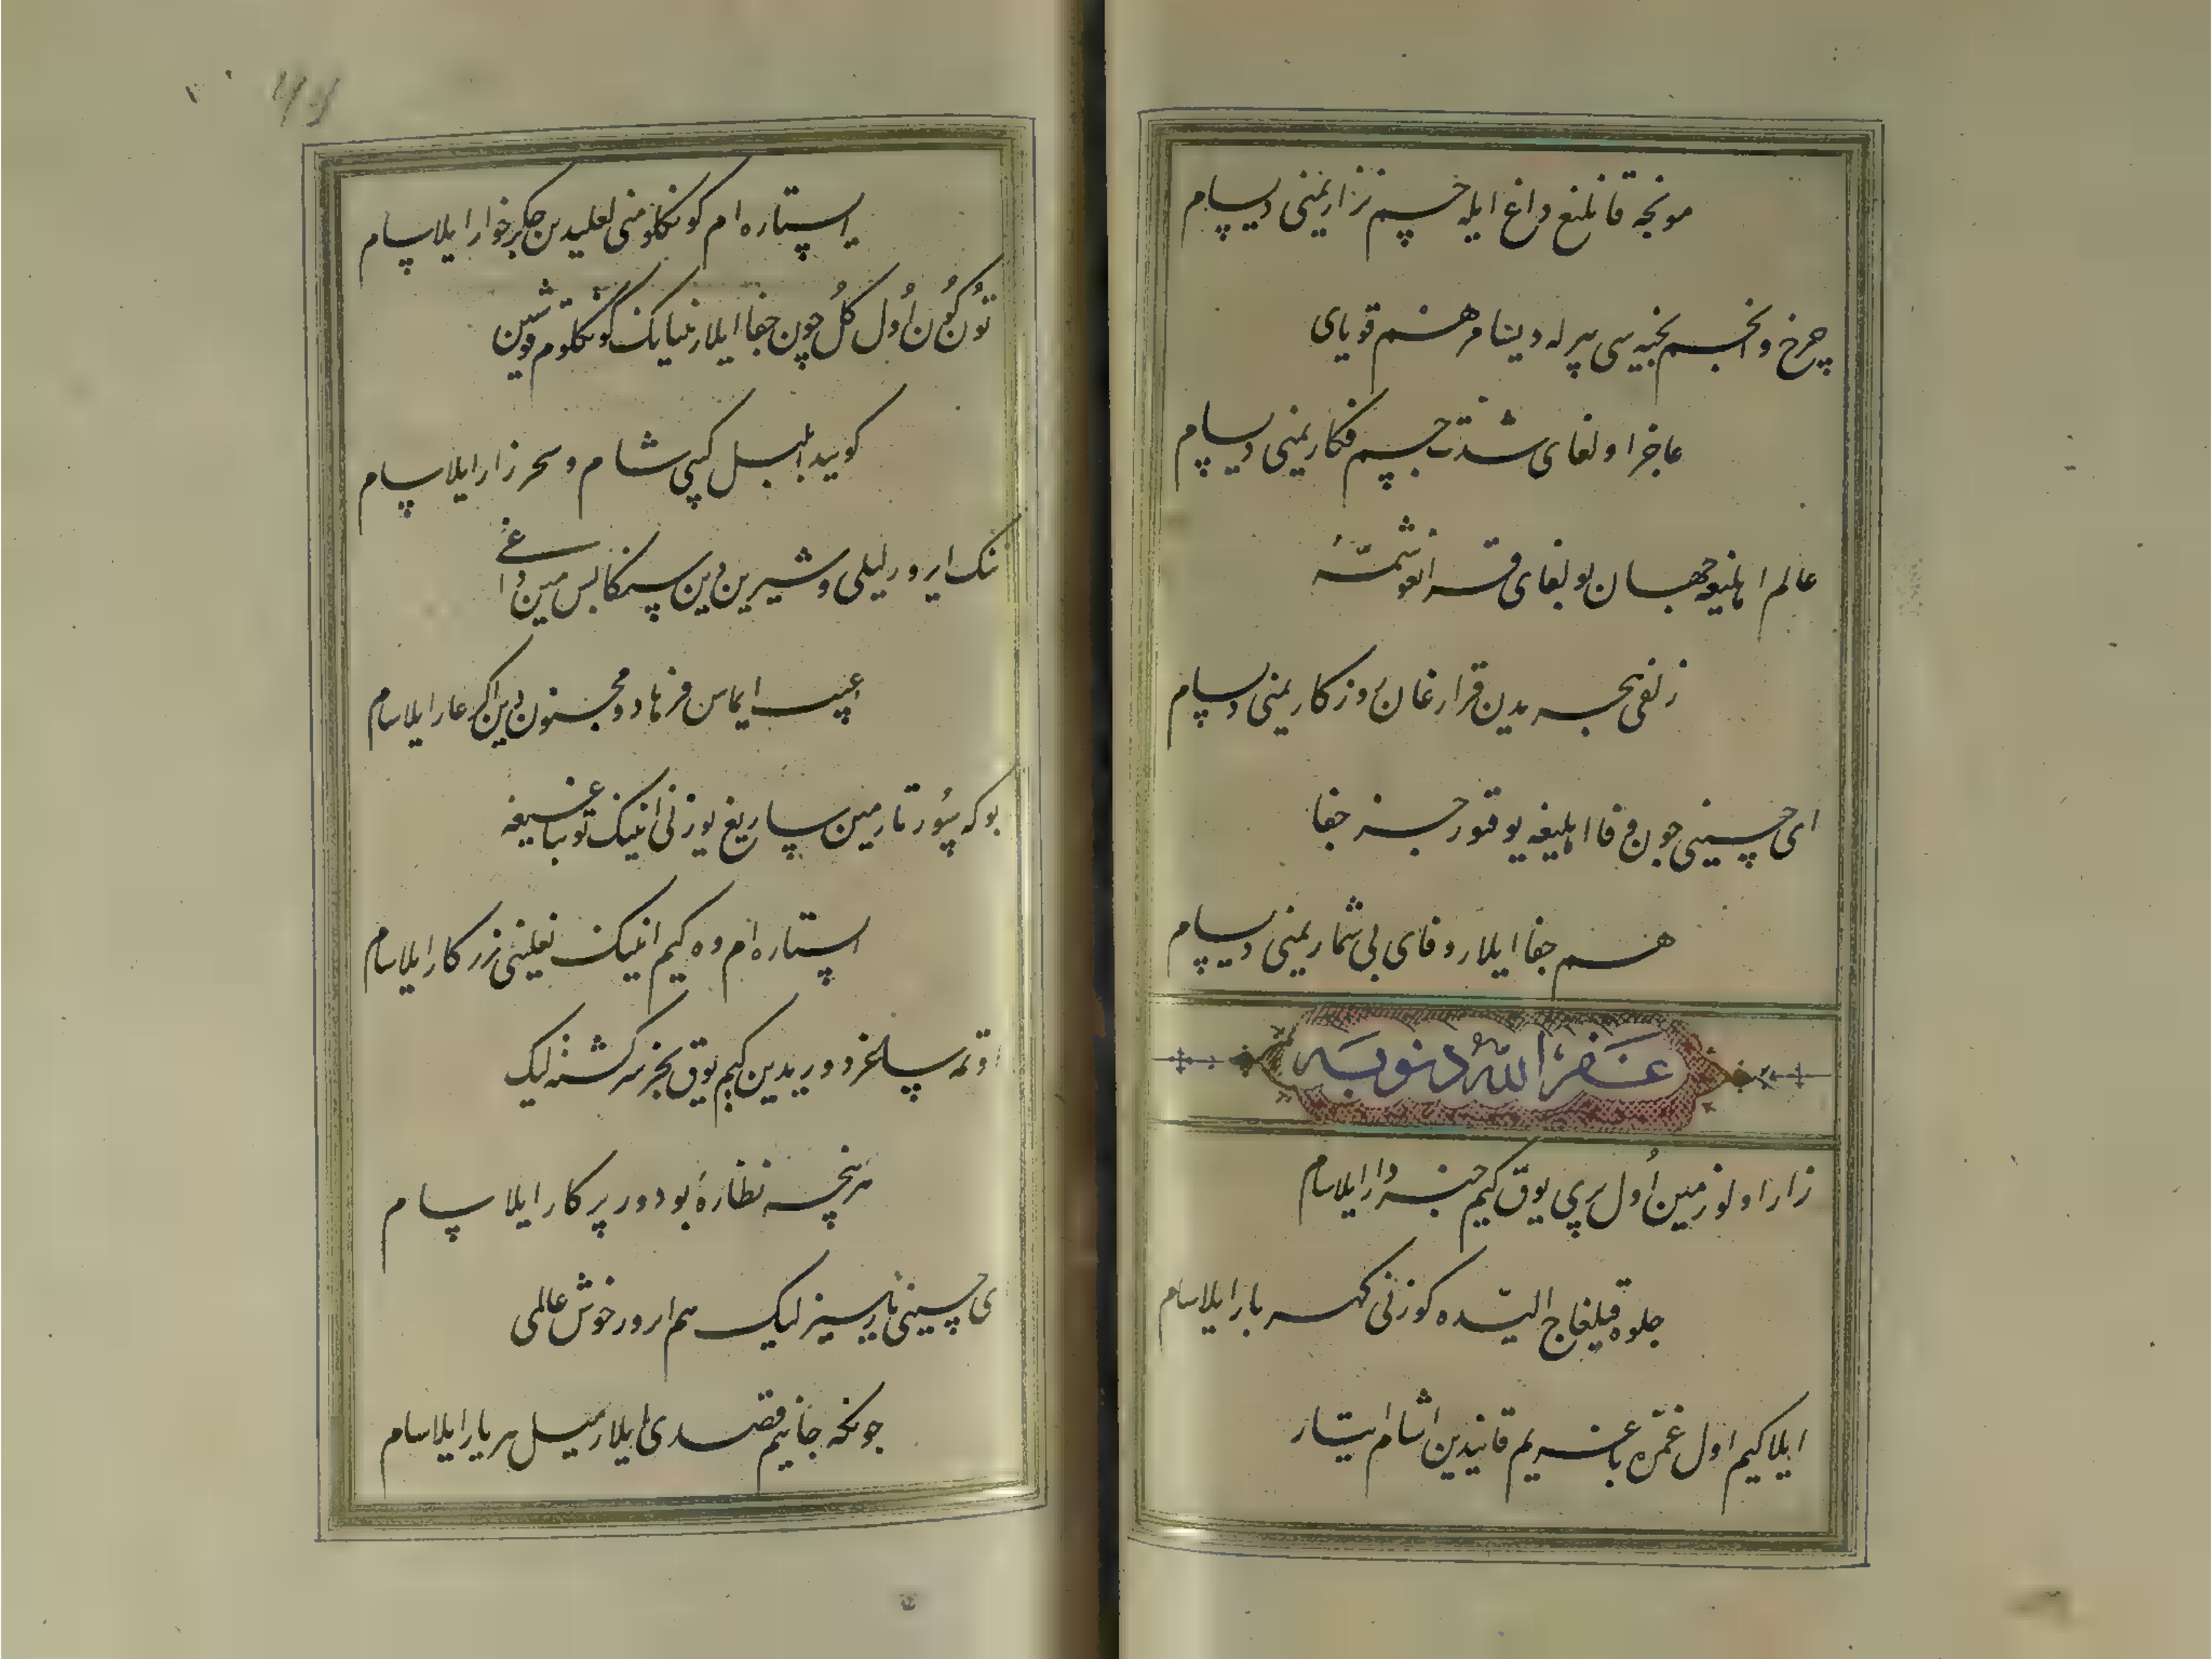 مونجه قانلیغ داغ ایله جسم نزاریمنی دیسام
چرخ و انجم بخیه سی بیرله دینامر هم قویای
عاجز اولغای شدت جسم فکاریمنی دیسام
عالم اهلیغه جهان بولغای قرانغو شمه
زلفی هجریدین قرارغان روزکاریمنی دیسام
ای حسینی چون وفا اهلیغه یوقتور جز جفا
هم جفا ایلار وفای بی شماریمنی دیسام
غفر الله ذنوبه
زار اولورمین اول پری یوق کیم خبردار ایلاسام
جلوه قیلغاج الیده کوزنی کهربار ایلاسام
ایلا کیم اول غمزه باغریم قانیدین آشام ایتار
ایستارام کونکلومنی لعلیدین جکرخوار ایلاسام
تون کون اول کل چون جفا ایلار نیتانک کونکلوم قوشین
کوییدا بلبل کیبی شام و سحر زار ایلاسام
ننک ایرور لیلی و شیرین دین سنکا بس مین داغی
عیب ایماس فرهاد و مجنون دین اکر عار ایلاسام
بوکه سورتارمین ساریغ یوزنی انینک توباغیغه
ایستارام وه کیم انینک نعلینی زرکار ایلاسام
اوتمه ساغر دوریدین کیم یوق بجز سرکشته لیک
هرنجه نظاره بو دور پرکار ایلاسام
ای حسینی یارسیز لیک هم ایرور خوش عالمی
چونکه جانیم قصدی ایلار میل هر یار ایلاسام